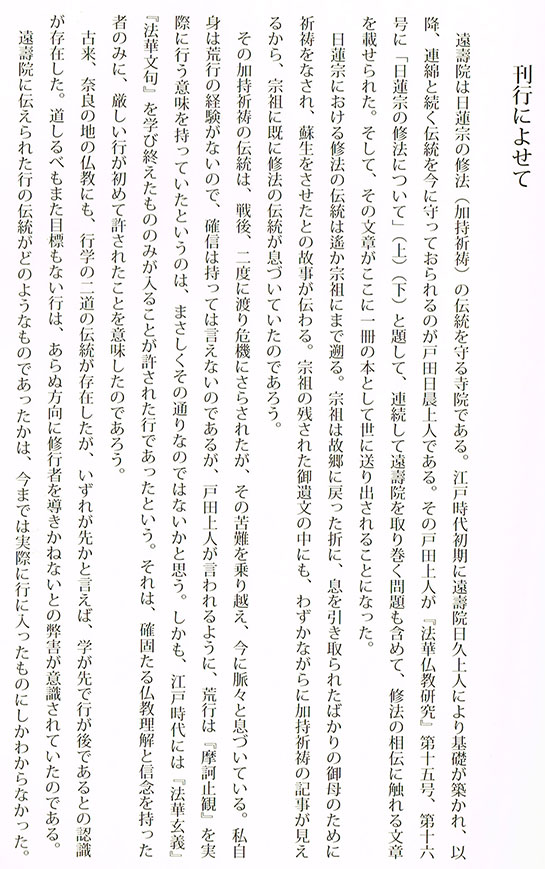 刊行によせて
遠壽院は日蓮宗の修法（加持祈祷）の伝統を守る寺院である。江戸時代初期に遠壽院日久上人により基礎が築かれ、以
降、連綿と続く伝統を今に守っておられるのが戸田日晨上人である。その戸田上人が『法華仏教研究』第十五号、第十六
号に「日蓮宗の修法について」（上）（下）と題して、連続して遠壽院を取り巻く問題も含めて、修法の相伝に触れる文章
を載せられた。そして、その文章がここに一冊の本として世に送り出されることになった。
日蓮宗における修法の伝統は遙か宗祖にまで遡る。宗祖は故郷に戻った折に、息を引き取られたばかりの御母のために
祈祷をなされ、蘇生をさせたとの故事が伝わる。宗祖の残された御遺文の中にも、わずかながらに加持祈祷の記事が見え
るから、宗祖に既に修法の伝統が息づいていたのであろう。
その加持祈祷の伝統は、戦後、二度に渡り危機にさらされたが、その苦難を乗り越え、今に脈々と息づいている。私自
身は荒行の経験がないので、確信は持っては言えないのであるが、戸田上人が言われるように、荒行は『摩訶止観』を実
際に行う意味を持っていたというのは、まさしくその通りなのではないかと思う。しかも、江戸時代には『法華玄義』
『法華文句』を学び終えたもののみが入ることが許された行であったという。それは、確固たる仏教理解と信念を持った
者のみに、厳しい行が初めて許されたことを意味したのであろう。
古来、奈良の地の仏教にも、行学の二道の伝統が存在したが、いずれが先かと言えば、学が先で行が後であるとの認識
が存在した。道しるべもまた目標もない行は、あらぬ方向に修行者を導きかねないとの弊害が意識されていたのである。
遠壽院に伝えられた行の伝統がどのようなものであったかは、今までは実際に行に入ったものにしかわからなかった。